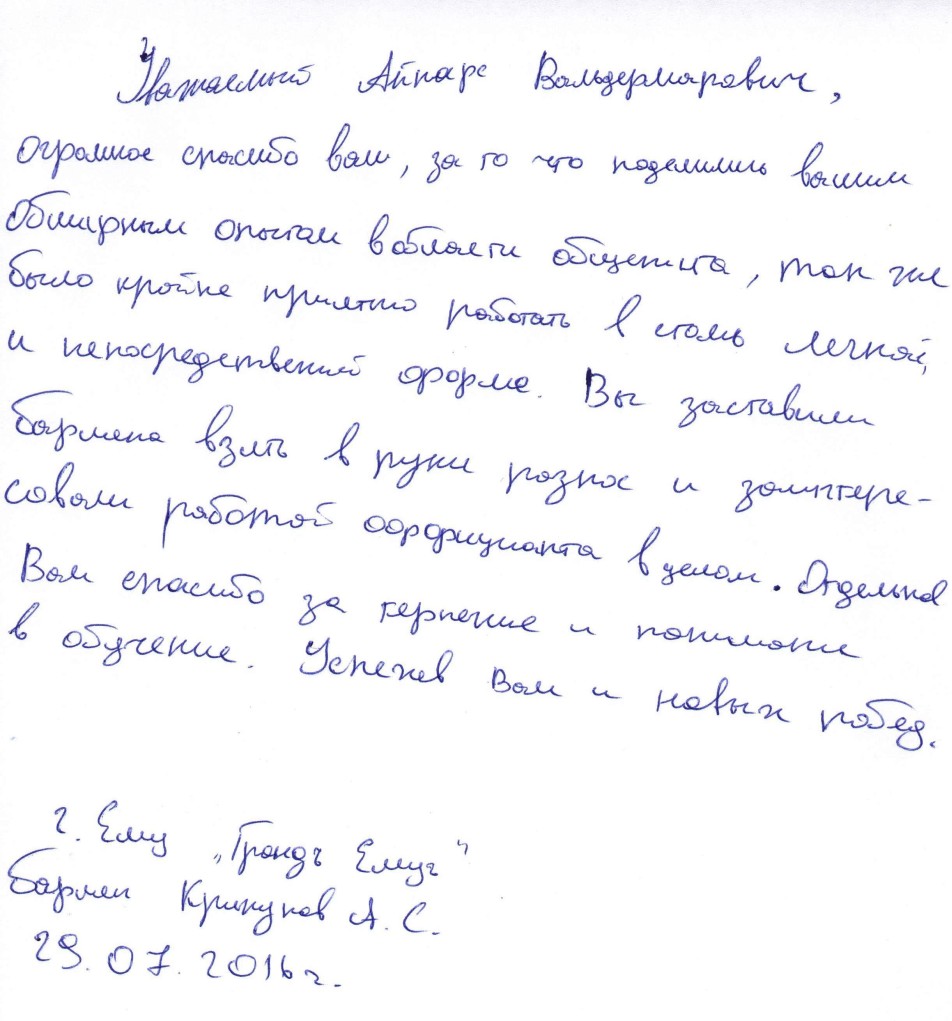 Уважаемый Айнарс Вальдермарович,
огромное спасибо вам, за то что поделились вашим
обширным опытом в области общепита, так же
было крайне приятно работать в столь легкой,
и непосредственной форме. Вы заставили
бармена взять в руки разнос и заинтере-
совали работой оффицианта в целом. Отдельное
Вам спасибо за терпение и понимание
в обучение. Успехов Вам и новых побед.
г. Елец „Грандъ Елецъ"
бармен Крикунов А. С.
29.07.2016 г.